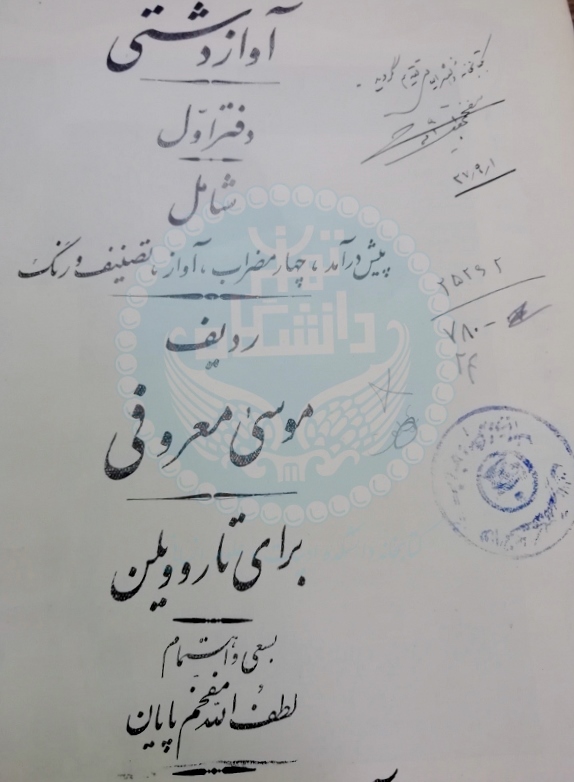 آواز دشتی
دفتر اول
شامل
پیش درآمد، چهار مضراب، آواز، تصنیف و رنگ
ردیف
موسیٰ معروفی
برای تار و ویلن
بسعی و اهتمام
لطف الله مفخم پایان
گردید
۳۷/۹/۱
۲۵۲۶۲
۷۸۰
۲۴
دانشگاه